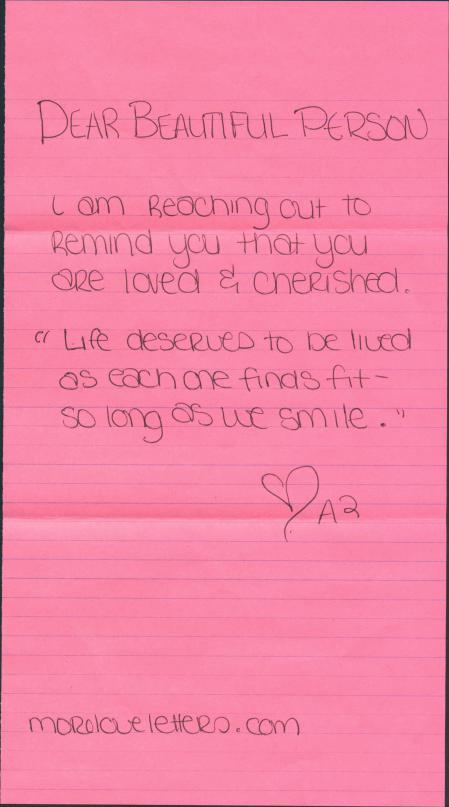 DEAR BEAUTIFUL PERSON
I am Reaching out to
Remind you that you
are loved & cherished.
"Life deserves to be lived
as each one finds fit-
so long as we smile."
♡ A2
moreloveletters.com